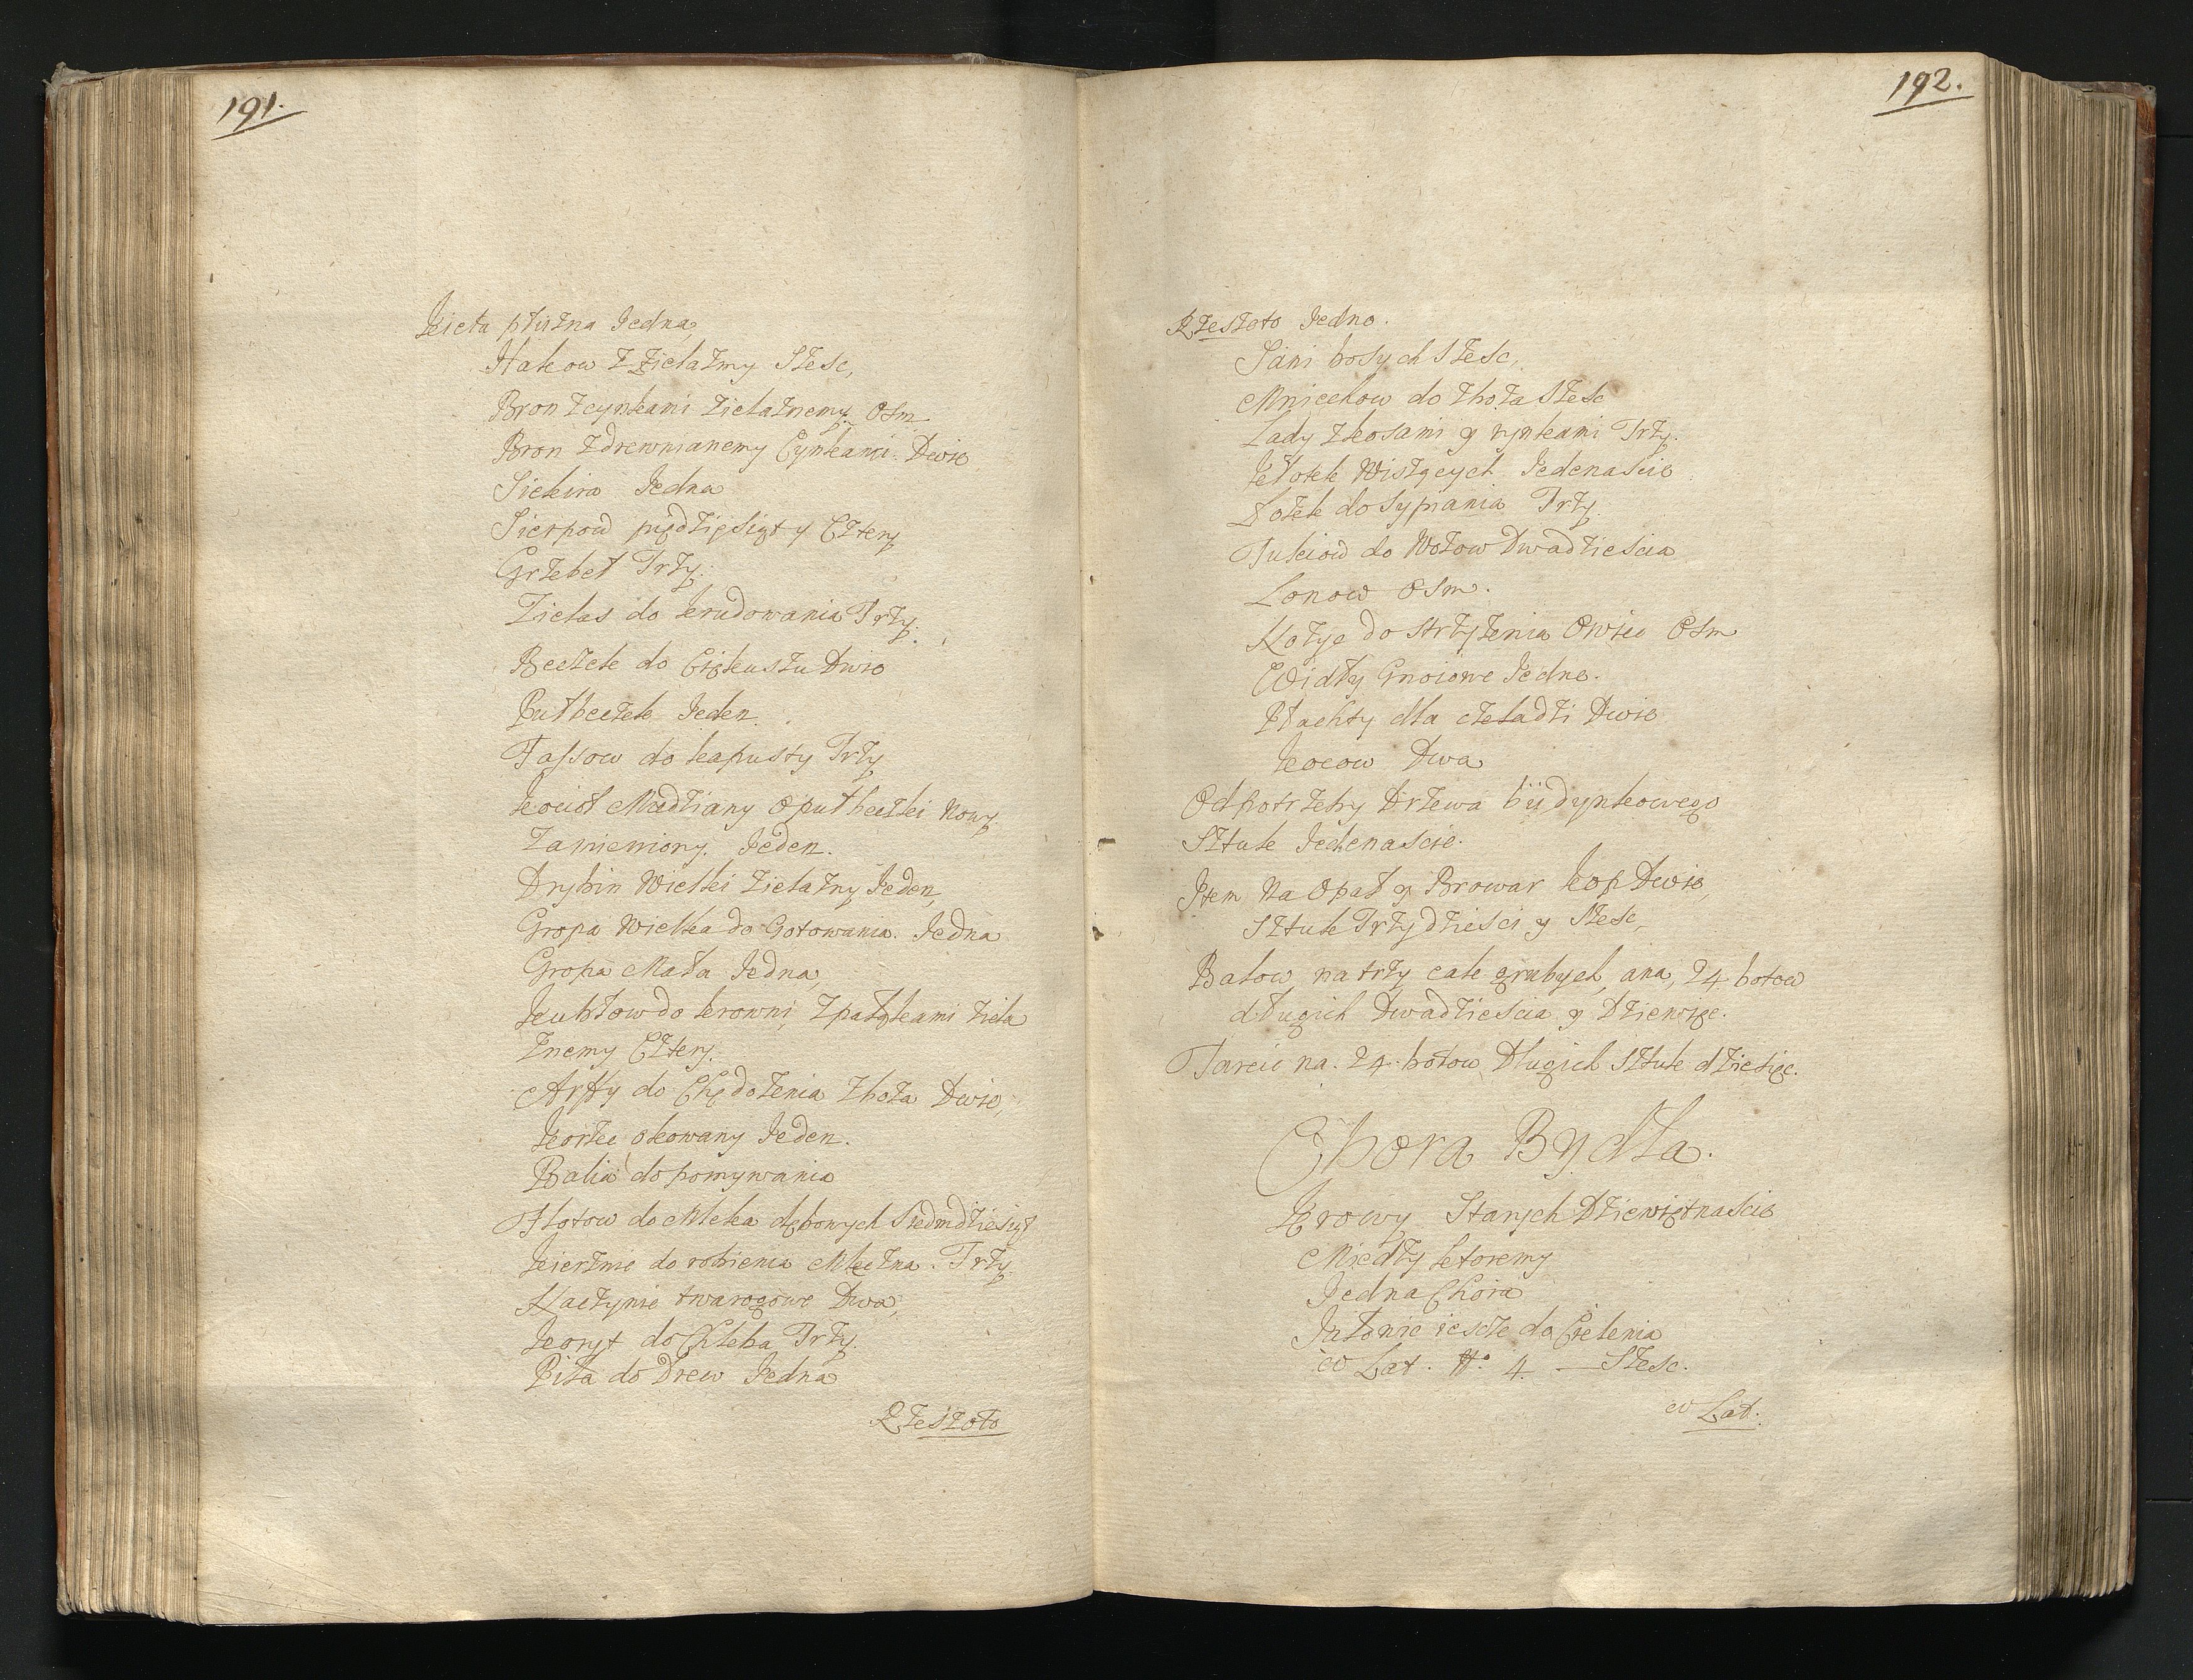 191.
Kieta płużna Jedna,
Hakow z Zielazmy Szesc,
Bron zcynkami zielaznemy Osm
Bron zdrewnianemy Cynkami Dwie
Siekira Jedna
Sierpow piędziesiąt y Cztery
Grzebet Trzy.
Zielas do krudowania Trzy.
Beczek do Ciękuszu Dwie
Putbeczek Jeden.
Fassow do kapusty Trzy
Kocioł Miedziany o putbeczki Nowy
Zamieniony. Jeden.
Drybin Wielki zielazny Jeden,
Gropa Wielka do Gotowania. Jedna
Gropa Mała Jedna,
Kubłow do krowni, zpałąkami ziela
znemy Cztery.
Arffy do Chędozenia zboza Dwie,
Korzec okowany Jeden.
Balia do pomywania
Flotow do Mleka dębowych Siedmdziesiąt
Kierznie do robienia Mleczna. Trzy
Naczynie twarogowe Dwa,
Koryt do Chleba Trzy.
Piła do Drew Jedna
Rzeszoto
192.
Rzeszoto Jedno.
Sani bosych Szesc,
Mniechow do zboża Szesc
Lady zkosami y rynkami Trzy.
Kłotek Wisząych Jedenascie
Łozek do Sypiania Trzy.
Jukiow do Wołow Dwadziescia
Lonow Osm.
Nożyc do strzyżenia Owiec Osm
Widły Gnoiowe Jedne.
Płachty dla czeladzi Dwie
Kocow Dwa
Od potrzeby Drzewa büdynkowego
Sztuk Jedenascie.
Item Na Opał y Browar kop Dwie,
Sztuk Trzydziesci y Szesc,
Balow na trzy cale grubych, ana, 24 botow
długich Dwadziescia y Dziewięc.
Tarcic na. 24. botow Długich Sztuk dziesięc.
Obora Bydła.
Krowy Starych Dziewiętnascie
Miedzy ktoremy
Jedna Chora
Jałowic iescze do Cielenia
w Lat. N: 4. — Szesc.
w Lat.